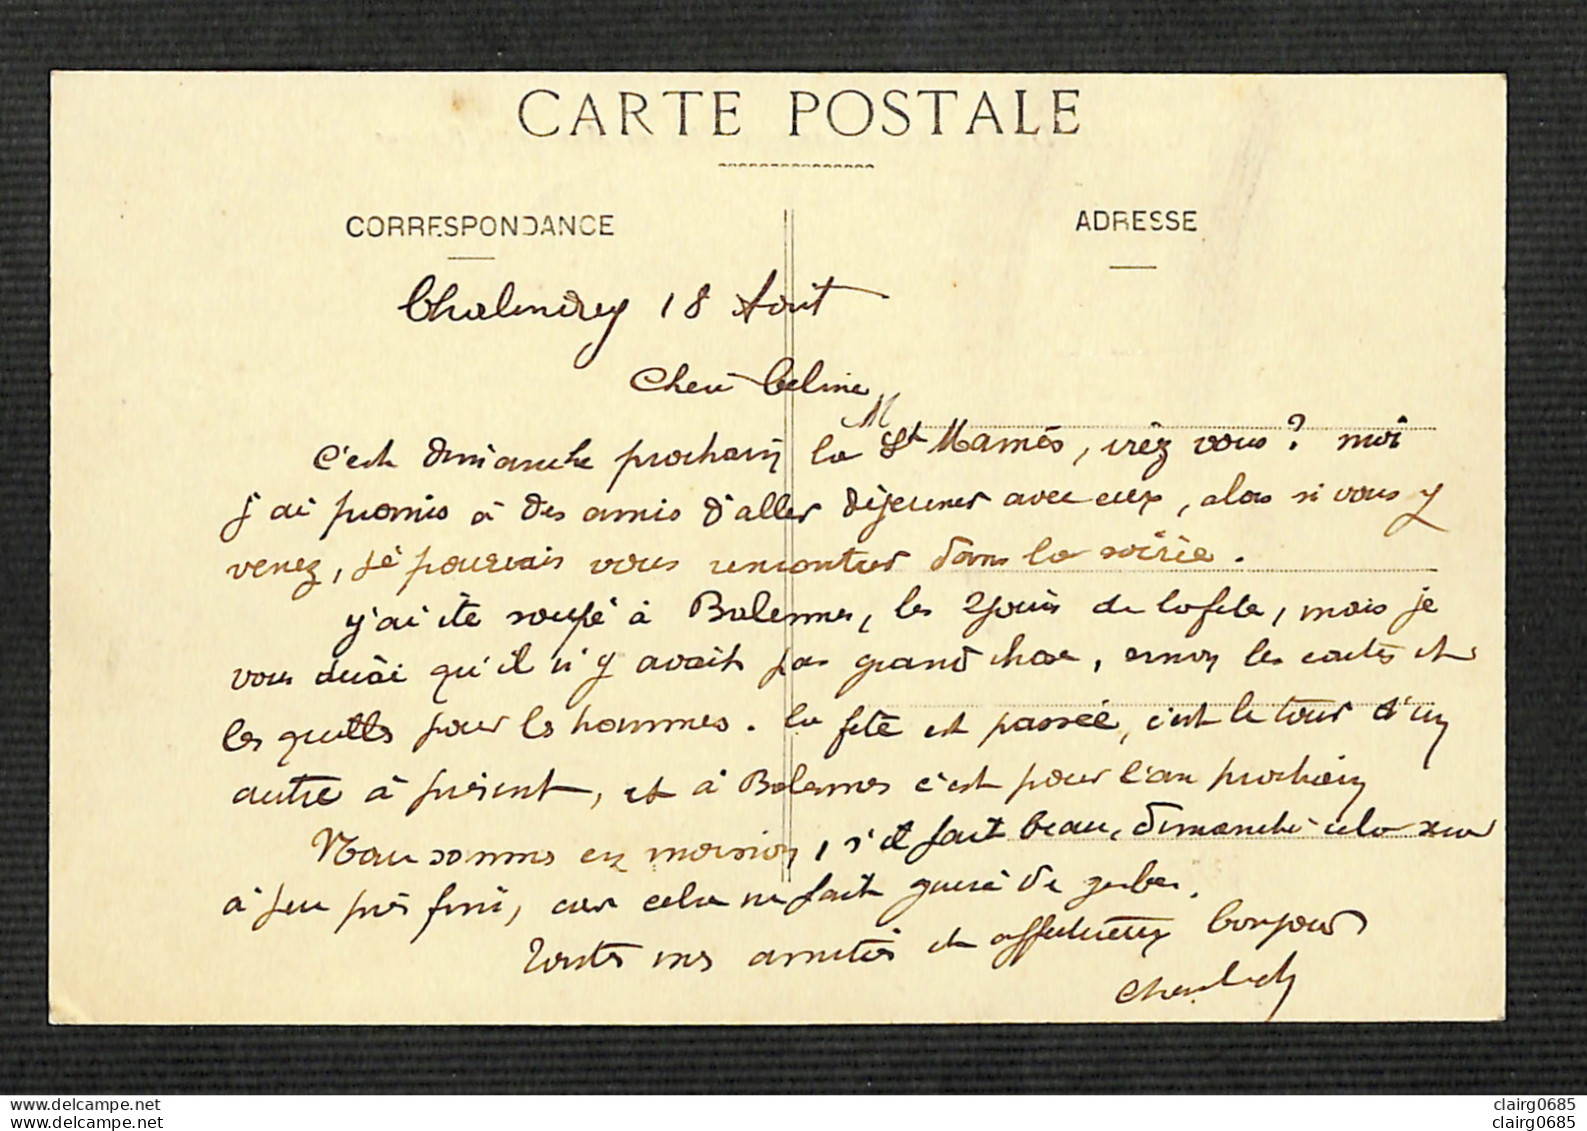 CARTE POSTALE
CORRESPONDANCE
ADRESSE
Chalindrey 18 Aout
Cher Celine
C'est dimanche prochain la St Mamès, irèz vous? moi
j'ai promis à des amis d'aller déjeuner avec eux, alors si vous y
venez, je pourrais vous rencontrer dans la soirée.
j'ai été soupé à Balesmes, les 2 jours de la fete, mais je
vous dirai qu'il n'y avait pas grand chose, sinon les cartes et
les quilles pour les hommes. la fete est passée, c'est le tour d'un
autre à présent, et à Balesmes c'est pour l'an prochain
Nous sommes en moisson, s'il fait beau, dimanche cela sera
à peu près fini, car cela ne fait guère de gerbes.
Toutes mes amitiés et affectueux bonjours
clairg0685
delcampe.net
clairg0685
delcampe.net